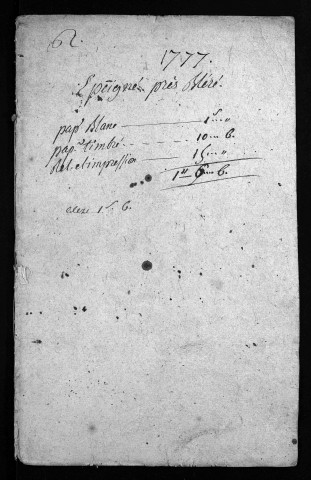 62
1777.
Epeigné près Bléré.
pap.r Blanc 1.s "
pap.r timbré 10 6.
Rel. et impression 15 "
1.tt 6 6.
1.s 6.